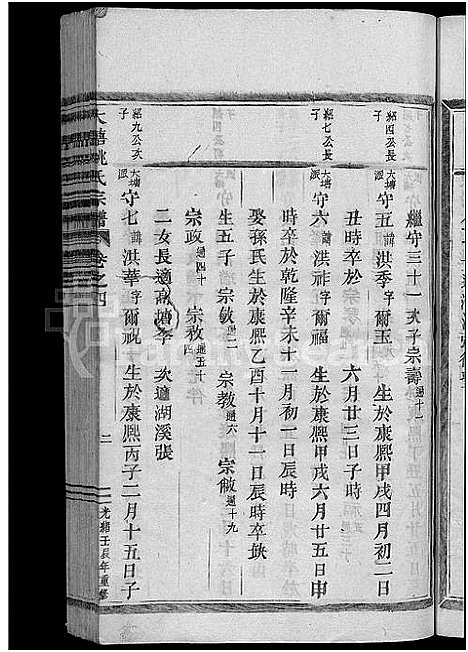 繼守三十一次子宗壽 通十一
紹四公長子
大塘派 守五 諱洪季 字爾玉 生於康熙甲戌四月初二日
丑時卒於 六月廿三日子時
紹七公長子
大塘派 守六 諱洪祚 字爾福 生於康熙甲戌六月廿五日申
時卒於乾隆辛未十一月初一日辰時
娶孫氏生於康熙乙酉十月十一日辰時卒缺
生五子 宗敏 通二 宗教 通六 宗敝 通十九
宗政 通四十 宗敉 通五十四
二女長適 塘李 次適湖溪張
紹九公次子
大塘派 守七 諱洪華 字爾祝 生於康熙丙子二月十五日子
姚氏宗譜 卷之四 二 光緒壬辰年重修